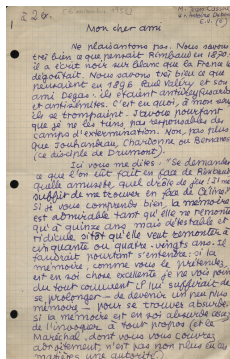 à 2 col.
1
Mon cher ami
Ne plaisantons pas. Nous savons
très bien ce que pensait Rimbaud en 1870:
il a écrit noir sur blanc que la France le
dégoûtait. Nous savons très bien ce que
pensaient en 1896 Paul Valéry et son
ami Degas: ils étaient antidreyfusards
et antisémites. C'est en quoi, à mon sens,
ils se trompaient. J'avoue pourtant
que je ne les tiens pas responsables des
camps d'extermination. Non, pas plus
que Jouhandeau, Chardonne ou Bernanos
(ce disciple de Drumont).
Ici vous me dites: "Se demande
ce que l'on eût fait en face de Rimbaud
quelle amusette, quel drôle de jeu! Il me
suffit de me trouver en face de Céline!
Si je vous comprends bien, la mémoire
est admirable tant qu'elle ne remonte
qu'à quinze ans mais détestable et
ridicule sitôt qu'elle veut remonter à
cinquante ou quatre-vingts ans. Il
faudrait pourtant s'entendre: si la
mémoire, comme vous le prétendez,
est en soi chose excellente je ne vois pas
du tout comment il lui suffirait de
se prolonger - de devenir un peu plus
mémoire - pour se trouver absurde
si la mémoire est en soi absurde
de l'invoquer à tout propos (et le
Maréchal, dont vous vous couvrez
abondamment, n'est pas non plus en ces
matières une autorité).